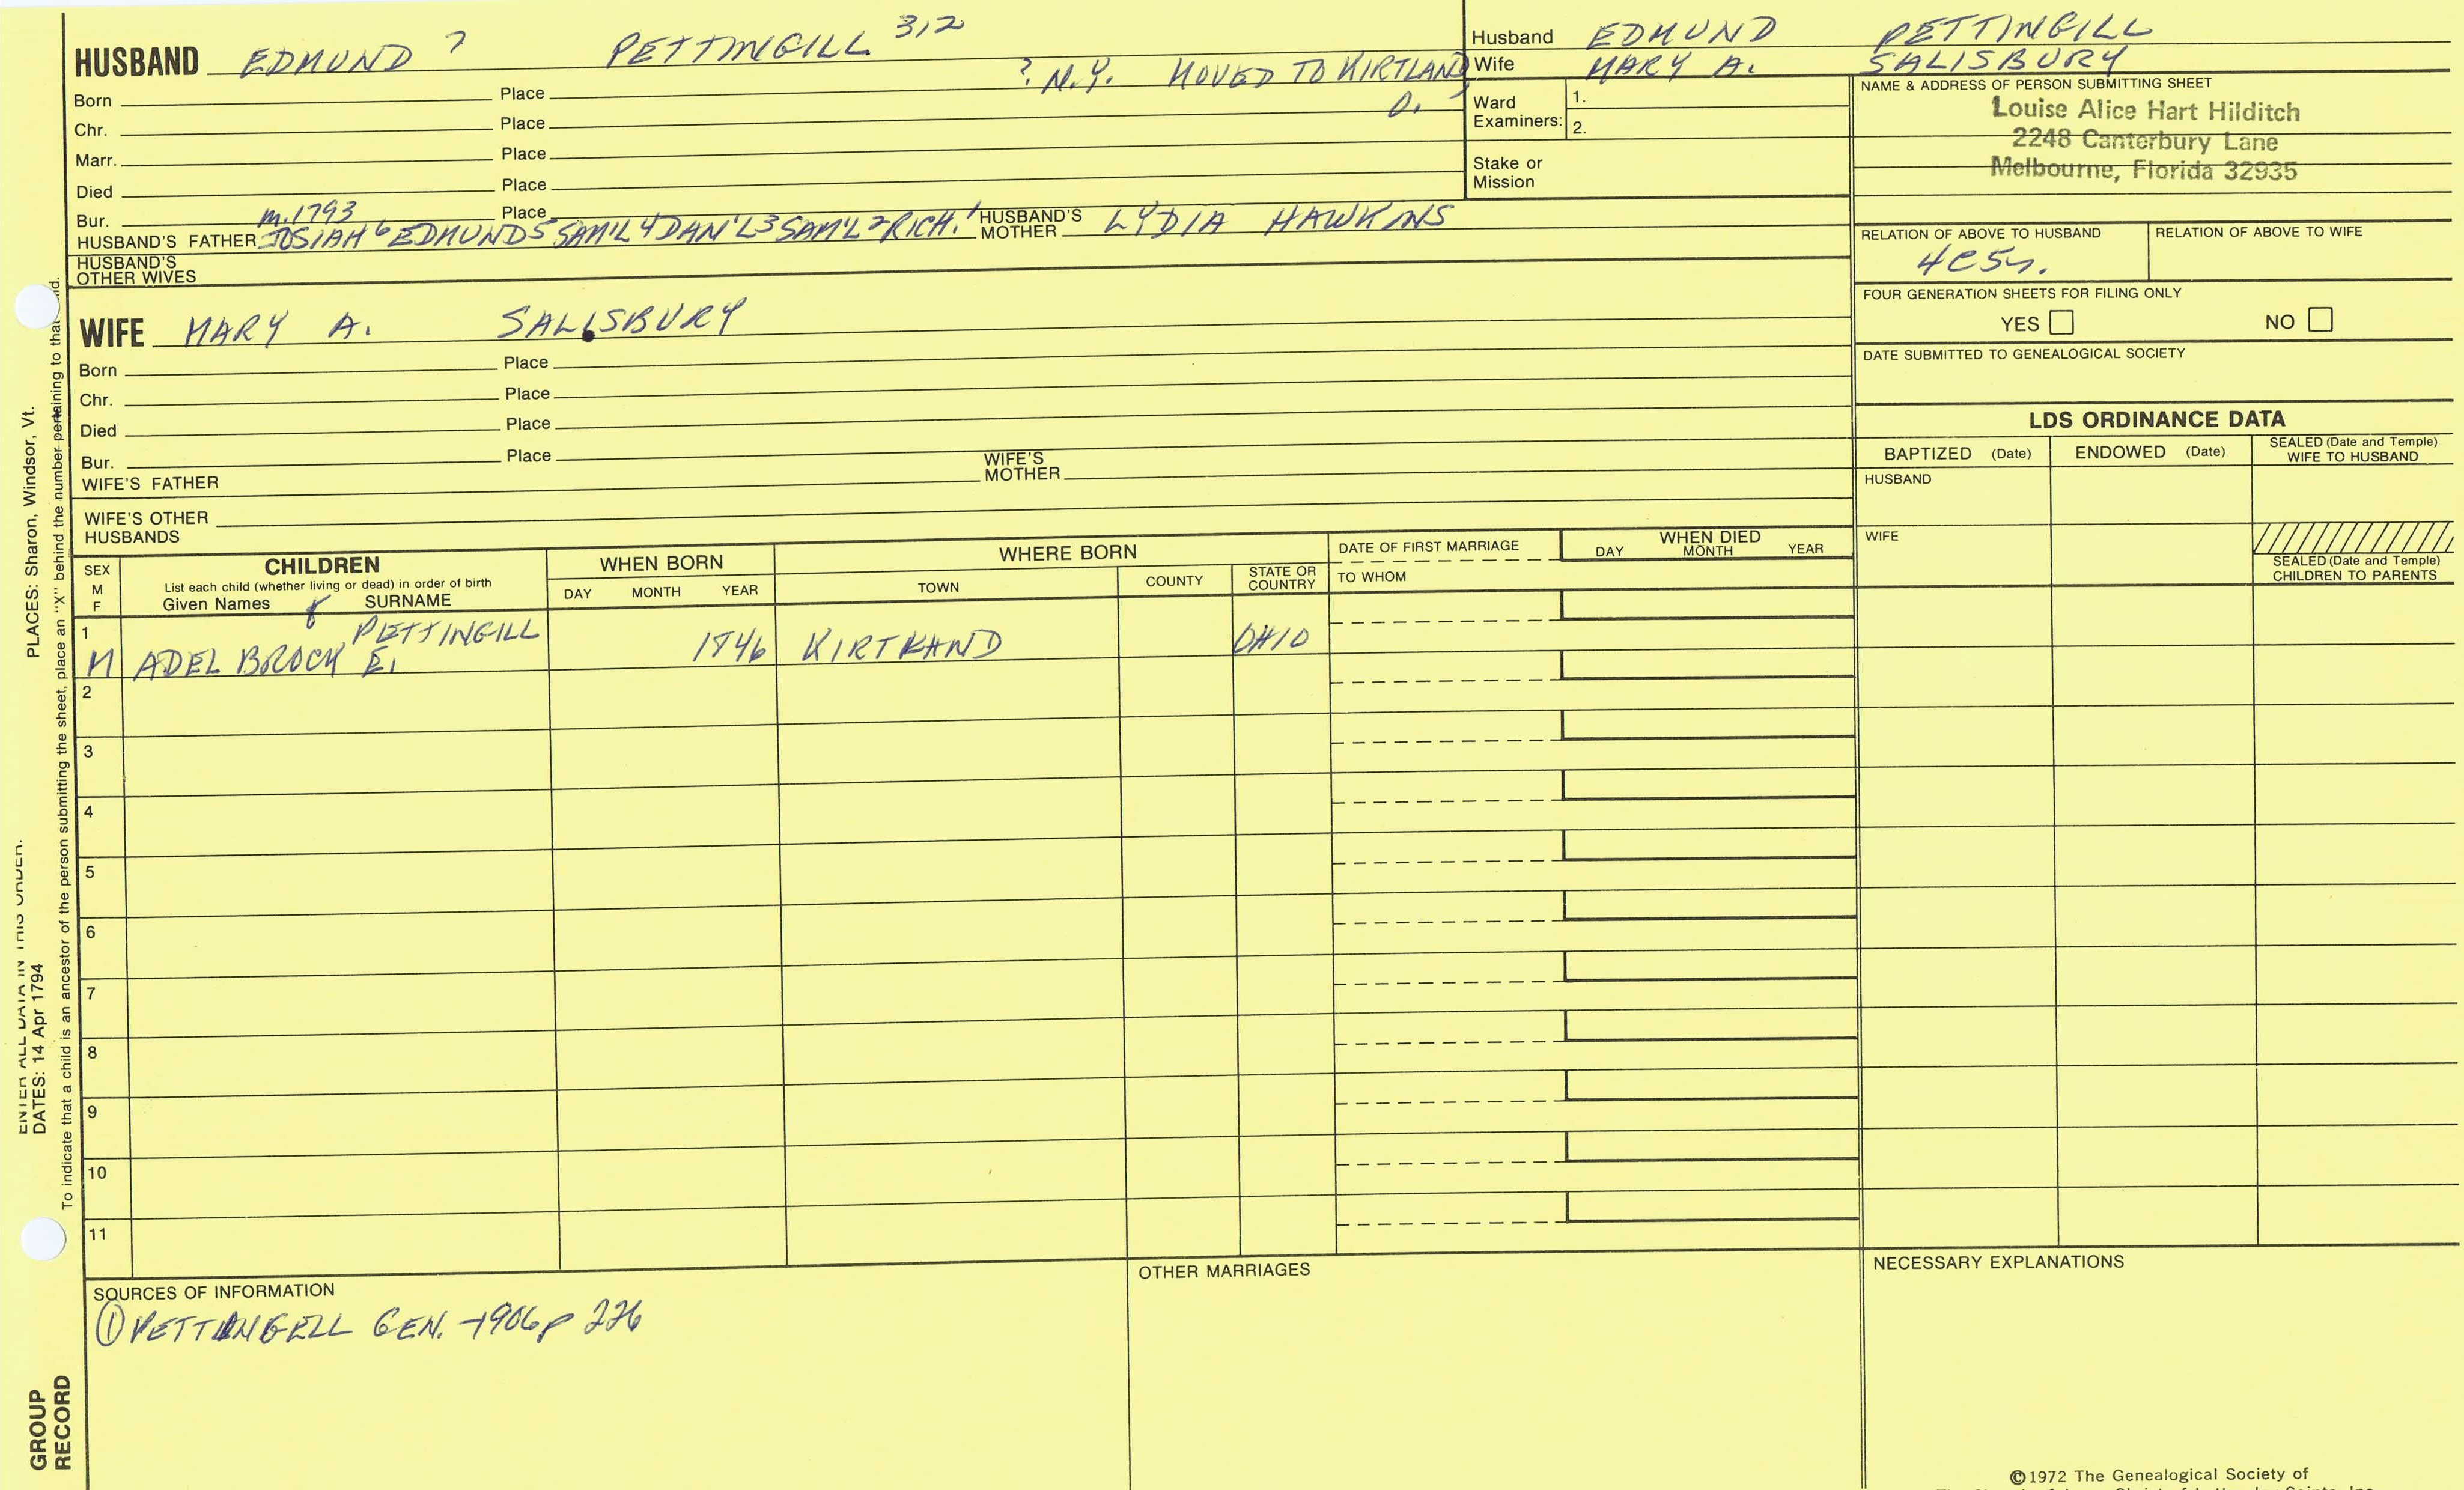 HUSBAND EDMUND 7 PETTINGILL 312
Born Place ? N.Y. MOVED TO KIRTLAND, O.
Chr. Place
Marr. Place
Died Place
Bur. Place
m. 1793
HUSBAND'S FATHER JOSIAH 6 EDMUND 5 SAM'L 4 DAN'L 3 SAM'L 2 RICH. 1 HUSBAND'S MOTHER LYDIA HAWKINS
HUSBAND'S OTHER WIVES
WIFE MARY A. SALISBURY
Born Place
Chr. Place
Died Place
Bur. Place
WIFE'S FATHER WIFE'S MOTHER
WIFE'S OTHER HUSBANDS
Husband EDMUND PETTINGILL
Wife MARY A. SALISBURY
Ward Examiners: 1.
2.
Stake or Mission
NAME & ADDRESS OF PERSON SUBMITTING SHEET
Louise Alice Hart Hilditch
2248 Canterbury Lane
Melbourne, Florida 32935
RELATION OF ABOVE TO HUSBAND RELATION OF ABOVE TO WIFE
4C5r.
FOUR GENERATION SHEETS FOR FILING ONLY
YES NO
DATE SUBMITTED TO GENEALOGICAL SOCIETY
LDS ORDINANCE DATA
BAPTIZED (Date) ENDOWED (Date) SEALED (Date and Temple) WIFE TO HUSBAND
HUSBAND
WIFE
SEALED (Date and Temple) CHILDREN TO PARENTS
SEX M F
CHILDREN
List each child (whether living or dead) in order of birth
Given Names SURNAME
WHEN BORN
DAY MONTH YEAR
WHERE BORN
TOWN COUNTY STATE OR COUNTRY
DATE OF FIRST MARRIAGE
TO WHOM
WHEN DIED
DAY MONTH YEAR
1 8 PETTINGILL
M ADEL BROCK E. 1846 KIRTKAND OHIO
2
3
4
5
6
7
8
9
10
11
SOURCES OF INFORMATION
① PETTINGELL GEN. -1906 p 226
OTHER MARRIAGES
NECESSARY EXPLANATIONS
©1972 The Genealogical Society of
ENTER ALL DATA IN THIS ORDER.
DATES: 14 Apr 1794 PLACES: Sharon, Windsor, Vt.
To indicate that a child is an ancestor of the person submitting the sheet, place an "X" behind the number pertaining to that
GROUP
RECORD